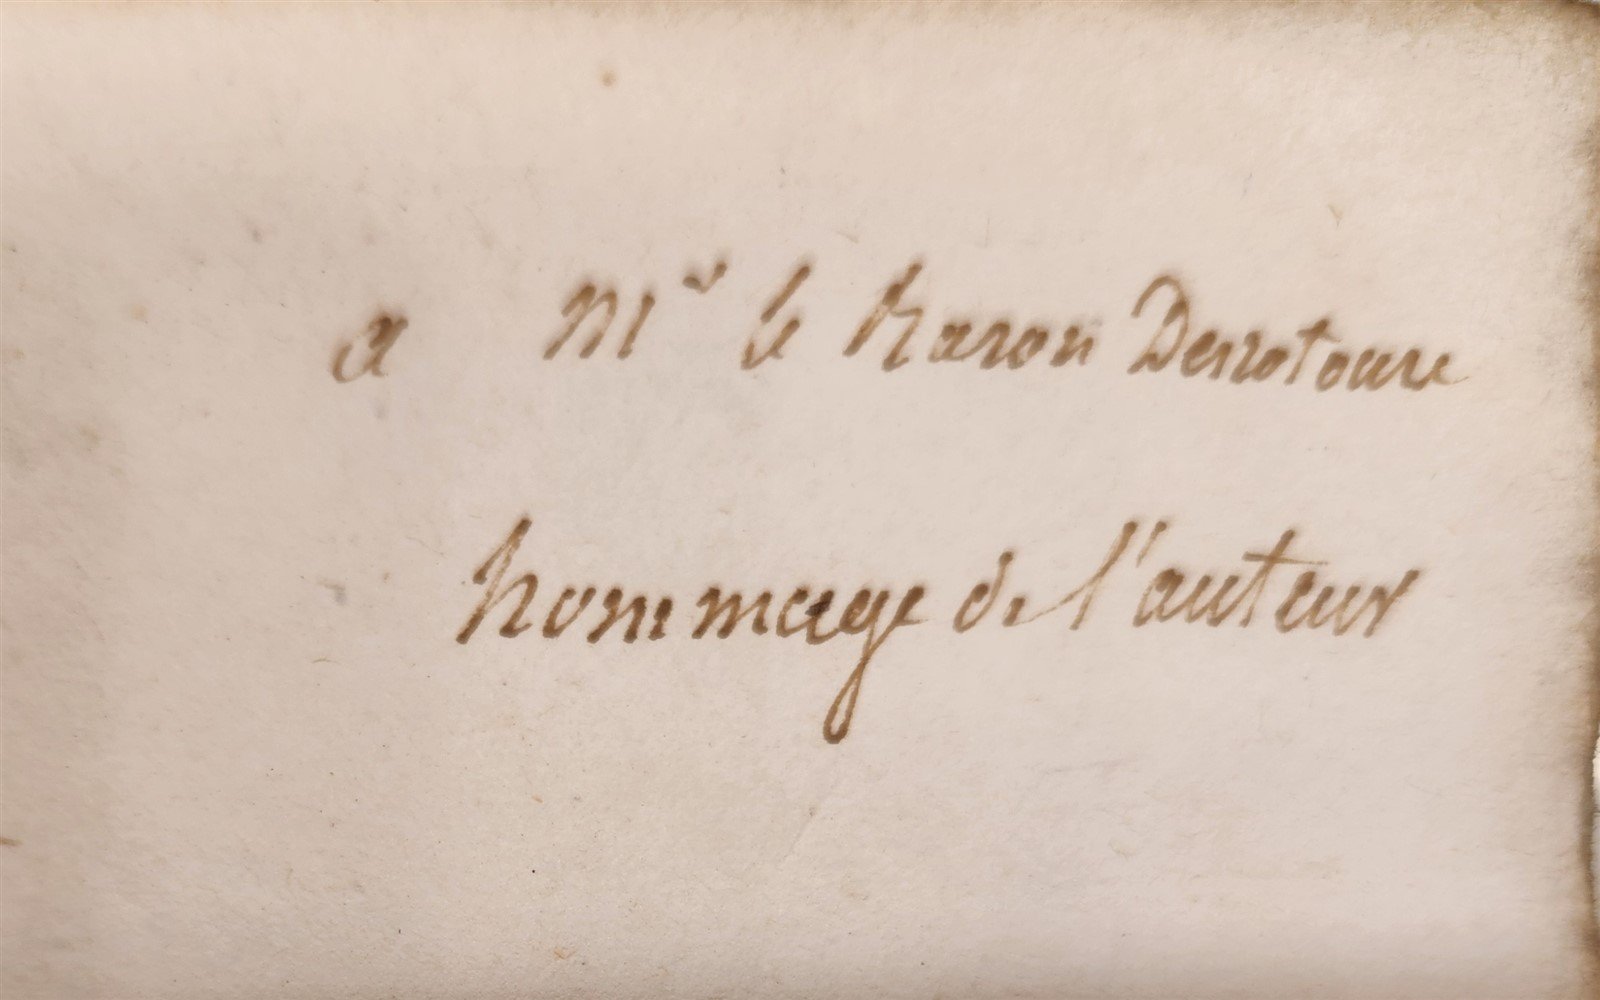 a Mr le Baron Desrotours
hommage de l'auteur